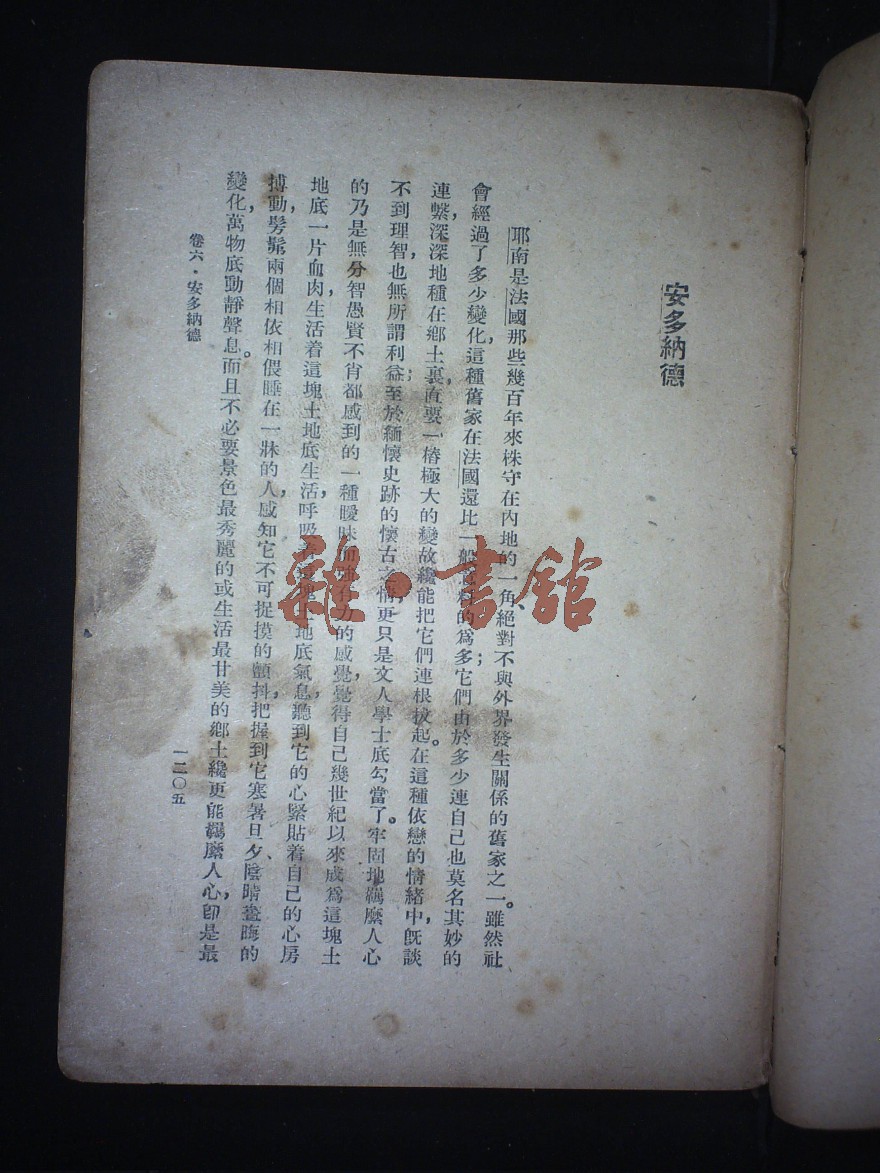 安多納德
耶南是法國那些幾百年來株守在內地的一角、絕對不與外界發生關係的舊家之一。雖然社
會經過了多少變化，這種舊家在法國還比一般意料的為多；它們由於多少連自己也莫名其妙的
連繫，深深地種在鄉土裏，直要一樁極大的變故纔能把它們連根拔起。在這種依戀的情緒中，旣談
不到理智，也無所謂利益；至於緬懷史跡的懷古之情，更只是文人學士底勾當了。牢固地羈縻人心
的乃是無分智愚賢不肖都感到的一種曖昧而強有力的感覺，覺得自己幾世紀以來成為這塊土
地底一片血肉，生活着這塊土地底生活，呼吸着這塊土地底氣息，聽到它的心緊貼着自己的心房
搏動，髣髴兩個相依相偎睡在一牀的人，感知它不可捉摸的顫抖，把握到它寒暑旦夕、陰晴晝晦的
變化，萬物底動靜聲息。而且不必要景色最秀麗的或生活最甘美的鄉土纔更能羈縻人心，卽是最
卷六·安多納德
一二〇五
雜·書館